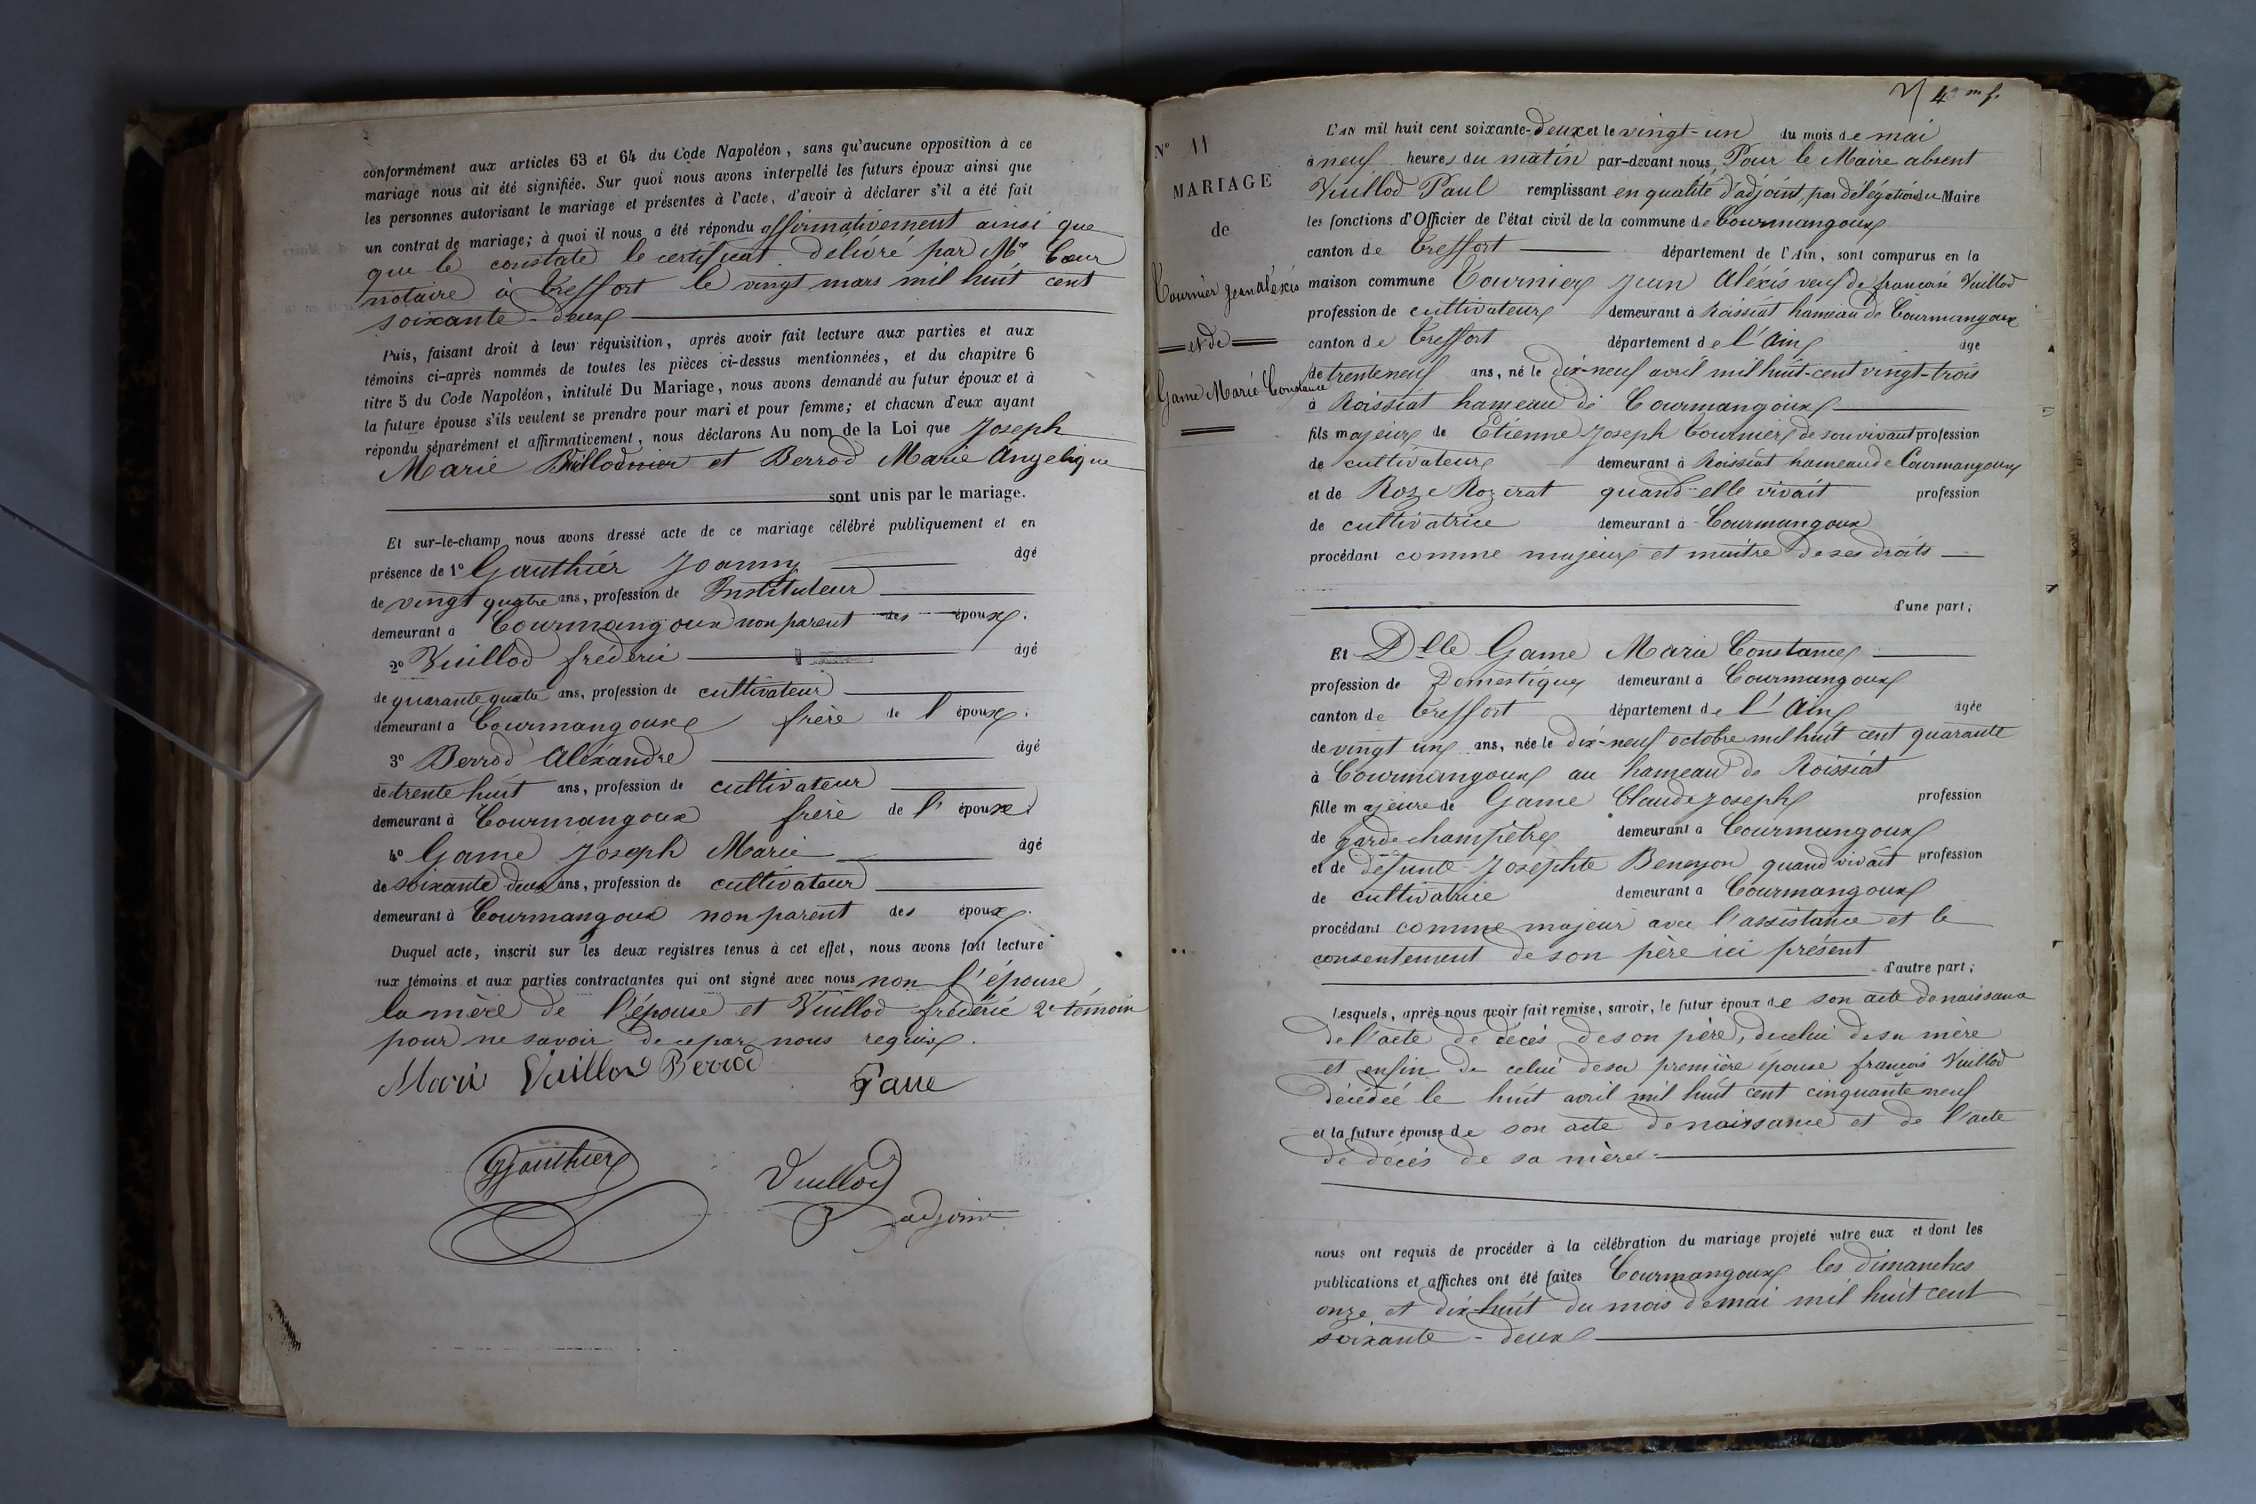 conformément aux articles 63 et 64 du Code Napoléon, sans qu'aucune opposition à ce
mariage nous ait été signifiée. Sur quoi nous avons interpellé les futurs époux ainsi que
les personnes autorisant le mariage et présentes à l'acte, d'avoir à déclarer s'il a été fait
un contrat de mariage; à quoi il nous a été répondu affirmativement ainsi que
que le constate le certificat délivré par Mr Cœur
notaire à Treffort le vingt mars mil huit cent
soixante-deux
Puis, faisant droit à leur réquisition, après avoir fait lecture aux parties et aux
témoins ci-après nommés de toutes les pièces ci-dessus mentionnées, et du chapitre 6
titre 5 du Code Napoléon, intitulé Du Mariage, nous avons demandé au futur époux et à
la future épouse s'ils veulent se prendre pour mari et pour femme; et chacun d'eux ayant
répondu séparément et affirmativement, nous déclarons Au nom de la Loi que Joseph
Marie et Berrod Marie Angelique
sont unis par le mariage.
Et sur-le-champ nous avons dressé acte de ce mariage célébré publiquement et en
présence de 1º Gauthier Joanny âgé
de vingt quatre ans, profession de Instituteur
demeurant à Courmangoux non parent des époux.
2º Vuillod frédéric âgé
de quarante quatre ans, profession de cultivateur
demeurant à Courmangoux frère de l'époux.
3º Berrod Aléxandre âgé
de trente huit ans, profession de cultivateur
demeurant à Courmangoux frère de l'époux.
4º Game Joseph Marie âgé
de soixante deux ans, profession de cultivateur
demeurant à Courmangoux non parent des époux.
Duquel acte, inscrit sur les deux registres tenus à cet effet, nous avons fait lecture
aux témoins et aux parties contractantes qui ont signé avec nous non l'épouse
la mère de l'épouse et Vuillod frédéric 2e témoin
pour ne savoir de ce par nous requis.
Marie Vuillod Berrod Game
Gauthier Vuillod
adjoint
4 m f.
Nº 11
MARIAGE
de
Tournier Jean Aléxis
et de
Game Marie Constance
L'AN mil huit cent soixante-deux et le vingt-un du mois de mai
à neuf heures du matin par-devant nous, Pour le Maire absent
Vuillod Paul remplissant en qualité d'adjoint, par délégation du Maire
les fonctions d'Officier de l'état civil de la commune de Courmangoux
canton de Treffort département de l'Ain, sont comparus en la
maison commune Tournier Jean Aléxis veuf de françoise Vuillod
profession de cultivateur demeurant à Roissiat hameau de Courmangoux
canton de Treffort département de l'Ain âgé
de trente neuf ans, né le dix-neuf avril mil huit-cent vingt-trois
à Roissiat hameau de Courmangoux
fils majeur de Etienne Joseph Tournier de son vivant profession
de cultivateur demeurant à Roissiat hameau de Courmangoux
et de Roze Rozerat quand elle vivait profession
de cultivatrice demeurant à Courmangoux
procédant comme majeur et maitre de ses droits
d'une part;
Et Dlle Game Marie Constance
profession de Domestique demeurant à Courmangoux
canton de Treffort département de l'Ain âgée
de vingt un ans, née le dix-neuf octobre mil huit cent quarante
à Courmangoux au hameau de Roissiat
fille majeure de Game Claude Joseph profession
de garde champêtre demeurant à Courmangoux
et de défunte Josephte quand vivait profession
de cultivatrice demeurant à Courmangoux
procédant comme majeur avec l'assistance et le
consentement de son père ici présent
d'autre part;
Lesquels, après nous avoir fait remise, savoir, le futur époux de son acte de naissance
de l'acte de décés de son père, de celui de sa mère
et enfin de celui de sa première épouse françois Vuillod
décédée le huit avril mil huit cent cinquante neuf
et la future épouse de son acte de naissance et de l'acte
de décés de sa mère.
nous ont requis de procéder à la célébration du mariage projeté entre eux et dont les
publications et affiches ont été faites Courmangoux les dimanches
onze et dix-huit du mois de mai mil huit cent
soixante-deux